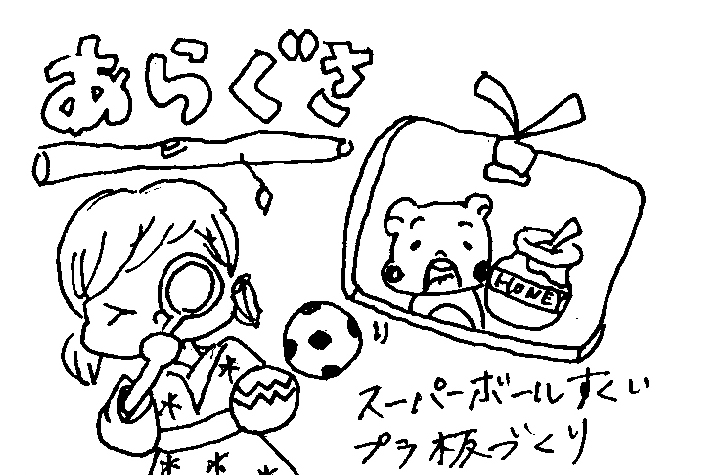 あらぐさ
HONEY
スーパーボールすくい
プラ板づくり